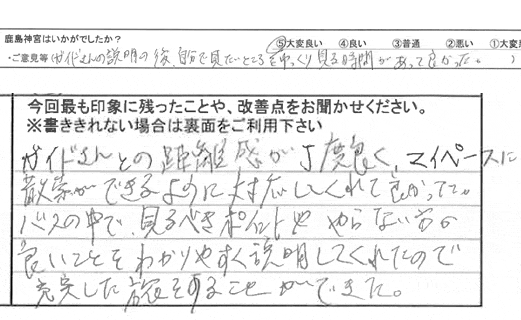 鹿島神宮はいかがでしたか？
⑤大変良い ④良い ③普通 ②悪い ①大変
・ご意見等(ガイドさんの説明の後、自分で見たいところをゆっくり見る時間があって良かった。 )
今回最も印象に残ったことや、改善点をお聞かせください。
※書ききれない場合は裏面をご利用下さい
ガイドさんとの距離感が丁度良く、マイペースに
散策ができるように対応してくれて良かったです。
バスの中で、見るべきポイントや やらない方が
良いことをわかりやすく説明してくれたので
充実した旅をすることができた。